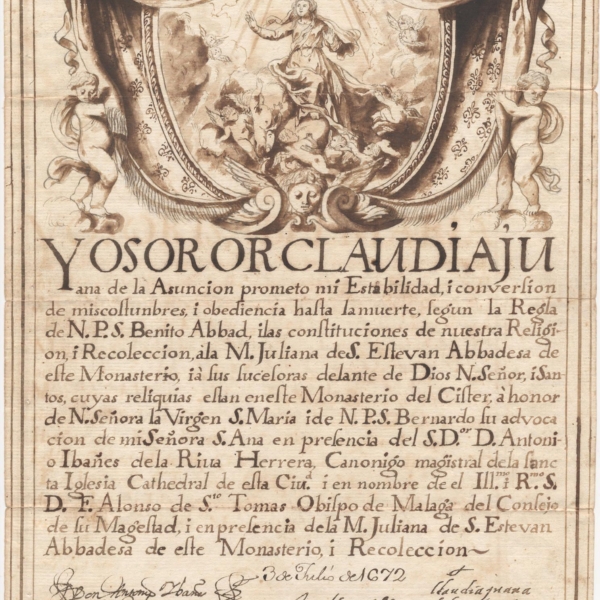 YO SOROR CLAUDIA JU
ana de la Asuncion prometo mi Estabilidad, i conversion
de miscostunbres, i obediencia hasta la muerte, segun la Regla
de N. P. S. Benito Abbad, i las constituciones de nuestra Religi-
on, i Recoleccion, àla M. Juliana de S. Estevan Abbadesa de
este Monasterio, i à sus sucesoras delante de Dios N. Señor, i San-
tos, cuyas reliquias estan en este Monasterio del Cister, à honor
de N. Señora la Virgen S. Maria i de N. P. S. Bernardo su advoca
cion de mi Señora S. Ana en presencia del S. D.or D. Antoni-
o Ibañes de la Riua Herrera, Canonigo magistral dela sanc
ta Iglesia Cathedral de esta Ciu.d i en nombre de el Ill.mo i R.mo S.
D. F. Alonso de S.to Tomas Obispo de Malaga del Consejo
de su Magestad, i en presencia dela M. Juliana de S. Estevan
Abbadesa de este Monasterio, i Recoleccion~
3 de Julio de 1672
Don Antonio Ibañes
Claudia juana